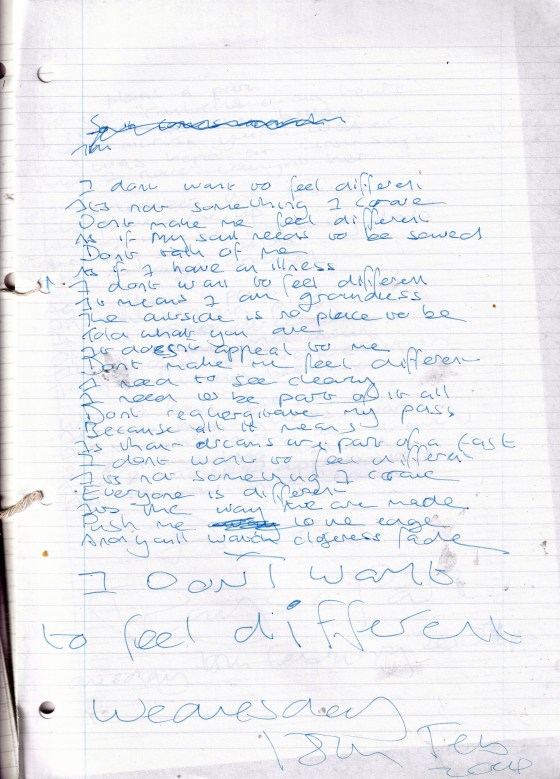 I dont want to feel different
Its not something I crave
Dont make me feel different
As if my soul needs to be saved
Dont talk of me
As if I have an illness
I dont want to feel different
It means I am groundless
The outside is no place to be
Told what you are
It doesnt appeal to me
Dont make me feel different
I need to see clearly
I need to be part of it all
Dont my pass
Because all it means
Is that dreams are part of a cast
I dont want to feel different
Its not something I crave
Everyone is different
Its the way we are made
Push me to the edge
And you'll watch closeness fade
I DON'T want
to feel different
Wednesday
18th Feb